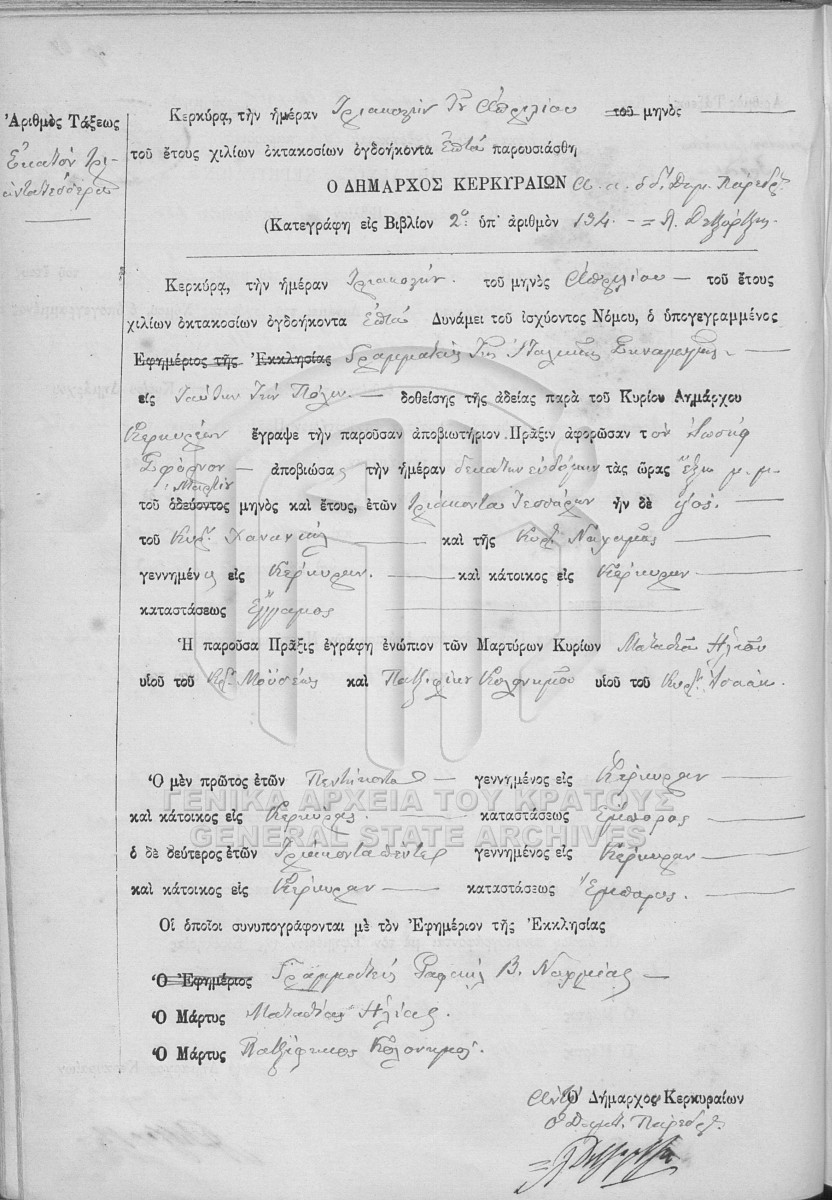 Ἀριθμὸς Τάξεως
Ἑκατὸν τρι-
αντατέσσερα
Κερκύρᾳ, τὴν ἡμέραν Τριακοστὴν Ἀπριλίου τοῦ μηνὸς
τοῦ ἔτους χιλίων ὀκτακοσίων ὀγδοήκοντα ἑπτὰ παρουσιάσθη
Ὁ ΔΗΜΑΡΧΟΣ ΚΕΡΚΥΡΑΙΩΝ
(Κατεγράφη εἰς Βιβλίον 2ον ὑπ' ἀριθμὸν 134.
Κερκύρᾳ, τὴν ἡμέραν Τριακοστὴν τοῦ μηνὸς Ἀπριλίου τοῦ ἔτους
χιλίων ὀκτακοσίων ὀγδοήκοντα ἑπτὰ Δυνάμει τοῦ ἰσχύοντος Νόμου, ὁ ὑπογεγραμμένος
Ἐφημέριος τῆς Ἐκκλησίας Γραμματεὺς τῆς Συναγωγῆς
εἰς ταύτην τὴν Πόλιν δοθείσης τῆς ἀδείας παρὰ τοῦ Κυρίου Δημάρχου
Κερκυραίων ἔγραψε τὴν παροῦσαν ἀποβιωτήριον Πρᾶξιν ἀφορῶσαν τὸν Ἰωσὴφ
ἀποβιώσας τὴν ἡμέραν δεκάτην ἑβδόμην τὰς ὥρας ἕξη μ.μ.
Μαρτίου
τοῦ ὁδεύοντος μηνὸς καὶ ἔτους, ἐτῶν τριάκοντα τεσσάρων ἦν δὲ υἱὸς
τοῦ Κυρ. Χανανιὰ καὶ τῆς Κυρ.
γεννημένος εἰς Κέρκυραν καὶ κάτοικος εἰς Κέρκυραν
καταστάσεως ἔγγαμος
Ἡ παροῦσα Πρᾶξις ἐγράφη ἐνώπιον τῶν Μαρτύρων Κυρίων Ματαθία Ἠλίου
υἱοῦ τοῦ Κυρ. Μωϋσέως καὶ Πατζιφίκου Κολονήμου υἱοῦ τοῦ Κυρ. Ἰσαὰκ.
Ὁ μὲν πρῶτος ἐτῶν Πεντήκοντα γεννημένος εἰς Κέρκυραν
καὶ κάτοικος εἰς Κέρκυραν καταστάσεως ἔμπορος
ὁ δὲ δεύτερος ἐτῶν Τριάκοντα πέντε γεννημένος εἰς Κέρκυραν
καὶ κάτοικος εἰς Κέρκυραν καταστάσεως ἔμπορος.
Οἱ ὁποῖοι συνυπογράφονται μὲ τὸν Ἐφημέριον τῆς Ἐκκλησίας
Ὁ Ἐφημέριος Γραμματεὺς Ραφαὴλ Β.
Ὁ Μάρτυς Ματαθίας Ἠλίας.
Ὁ Μάρτυς Πατζίφικος Κολονήμος.
Ὁ Δήμαρχος Κερκυραίων
Ὁ Δημ. Πάρεδρ.
ΓΕΝΙΚΑ ΑΡΧΕΙΑ ΤΟΥ ΚΡΑΤΟΥΣ
GENERAL STATE ARCHIVES